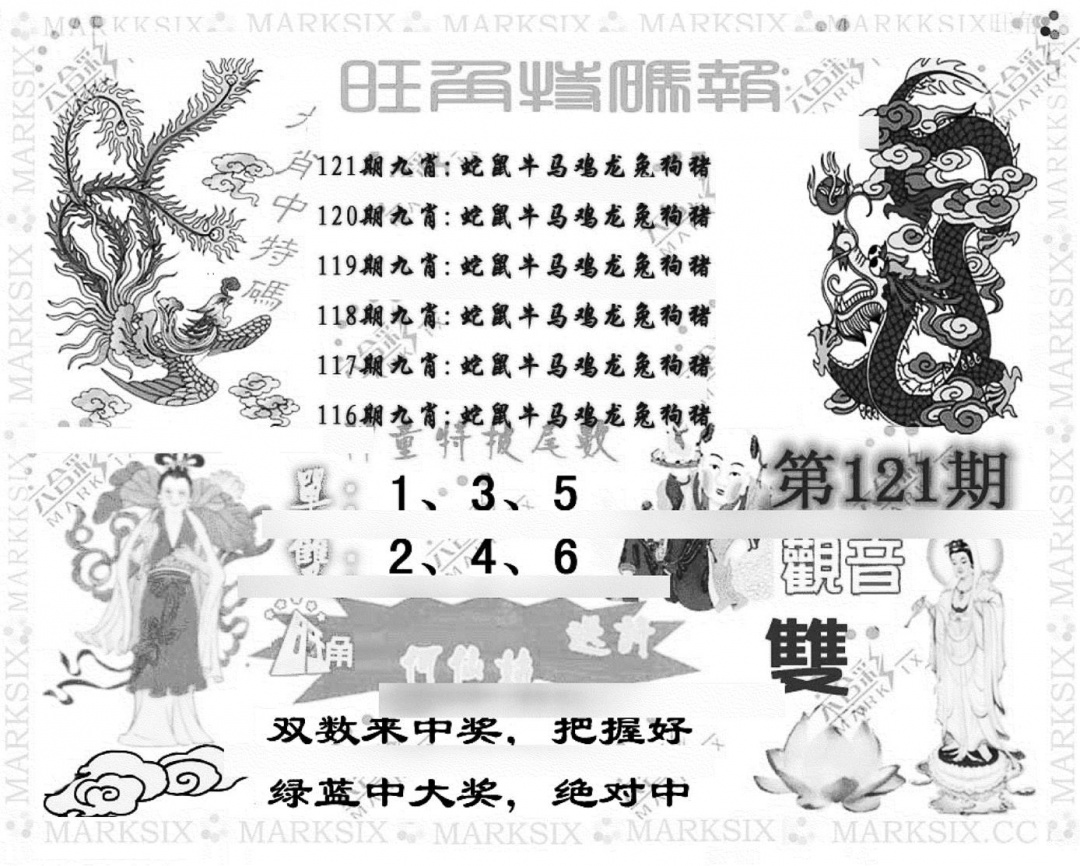 MARKSIX MARKSIX MARKSIX MARKSIX MARKKSIX
旺角特碼報
九肖中特碼
121期九肖:蛇鼠牛马鸡龙兔狗猪
120期九肖:蛇鼠牛马鸡龙兔狗猪
119期九肖:蛇鼠牛马鸡龙兔狗猪
118期九肖:蛇鼠牛马鸡龙兔狗猪
117期九肖:蛇鼠牛马鸡龙兔狗猪
116期九肖:蛇鼠牛马鸡龙兔狗猪
童特披尾数
第121期
單: 1、3、5
雙: 2、4、6
觀音
雙
角
何仙姑
双数来中奖，把握好
绿蓝中大奖，绝对中
MARKSIX MARKSIX MARKSIX MARKSIX MARKSIX.CC